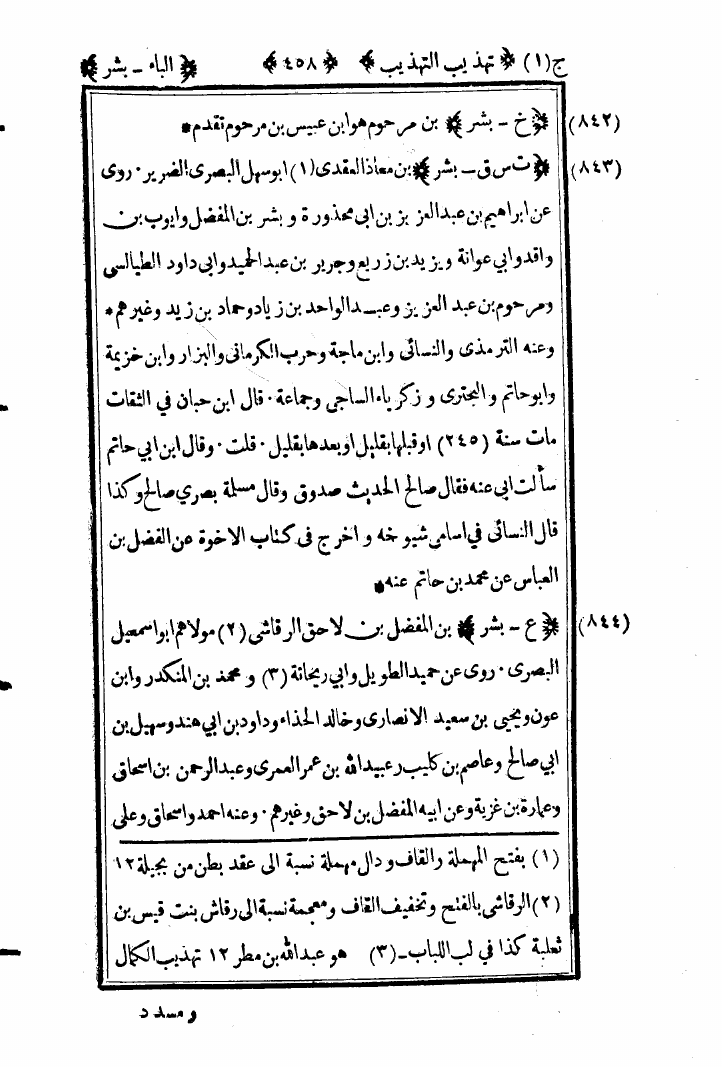 ج(١) ﴿ تهذيب التهذيب ﴾ ﴿ ٤٥٨ ﴾ ﴿ الباء ـ بشر ﴾
(٨٤٢) ﴿ خ ـ بشر ﴾ بن مرحوم هو ابن عبيس بن مرحوم تقدم *
(٨٤٣) ﴿ ت س ق ـ بشر ﴾ بن معاذ العقدى (١) ابو سهل البصرى الضرير · روى
عن ابراهيم بن عبد العزيز بن ابى محذورة و بشر بن المفضل وايوب بن
واقد وابي عوانة ويزيد بن زريع وجرير بن عبد الحميد وابى داود الطيالسى
ومرحوم بن عبد العزيز وعبد الواحد بن زياد وحماد بن زيد وغيرهم *
وعنه الترمذى والنسائى وابن ماجة وحرب الكرمانى والبزار وابن خزيمة
وابو حاتم والبجترى و زكرياء الساجى وجماعة · قال ابن حبان في الثقات
مات سنة (٢٤٥) او قبلها بقليل او بعدها بقليل · قلت · وقال ابن ابي حاتم
سألت ابى عنه فقال صالح الحديث صدوق وقال مسلمة بصري صالح وكذا
قال النسائى في اسامى شيوخه و اخرج فى كتاب الاخوة عن الفضل بن
العباس عن محمد بن حاتم عنه *
(٨٤٤) ﴿ ع ـ بشر ﴾ بن المفضل بن لاحق الرقاشى (٢) مولاهم ابو اسمعيل
البصرى · روى عن حميد الطويل وابي ريحانة (٣) و محمد بن المنكدر وابن
عون ويحيى بن سعيد الانصارى وخالد الحذاء وداود بن ابي هند وسهيل بن
ابي صالح وعاصم بن كليب وعبيد الله بن عمر العمرى وعبد الرحمن بن اسحاق
وعمارة بن غزية وعن ابيه المفضل بن لاحق وغيرهم · وعنه احمد واسحاق وعلى
(١) بفتح المهملة والقاف و دال مهملة نسبة الى عقد بطن من بجيلة ١٢
(٢) الرقاشى بالفتح وتخفيف القاف و معجمة نسبة الى رقاش بنت قيس بن
ثعلبة كذا في لب اللباب ـ (٣) هو عبد الله بن مطر ١٢ تهذيب الكمال
و مسدد